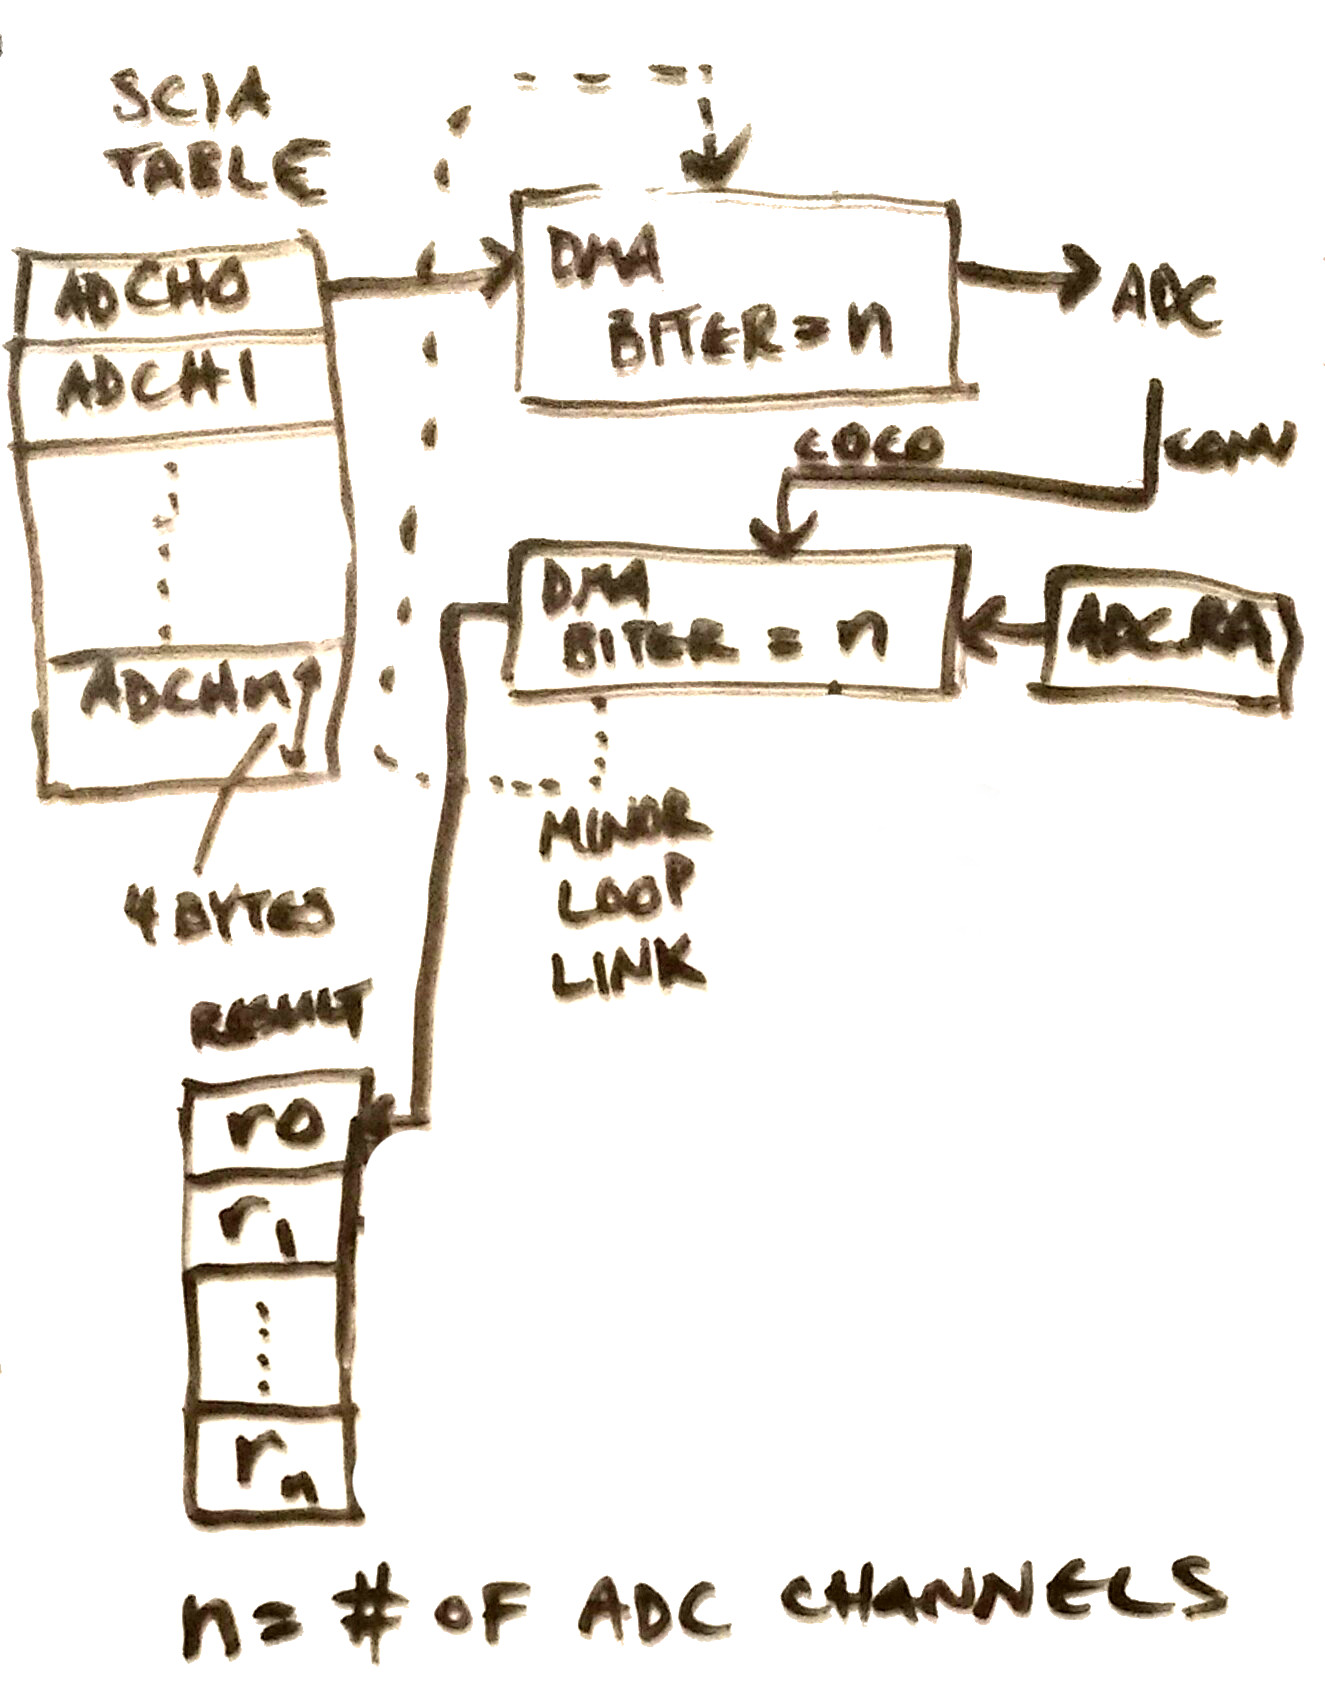 SC1A
TABLE
ADCH0
ADCH1
ADCHn
4 BYTES
DMA
BITER = n
ADC
COCO
CONV
DMA
BITER = n
ADC RA
MINOR
LOOP
LINK
RESULT
r0
r1
rn
n = # OF ADC CHANNELS